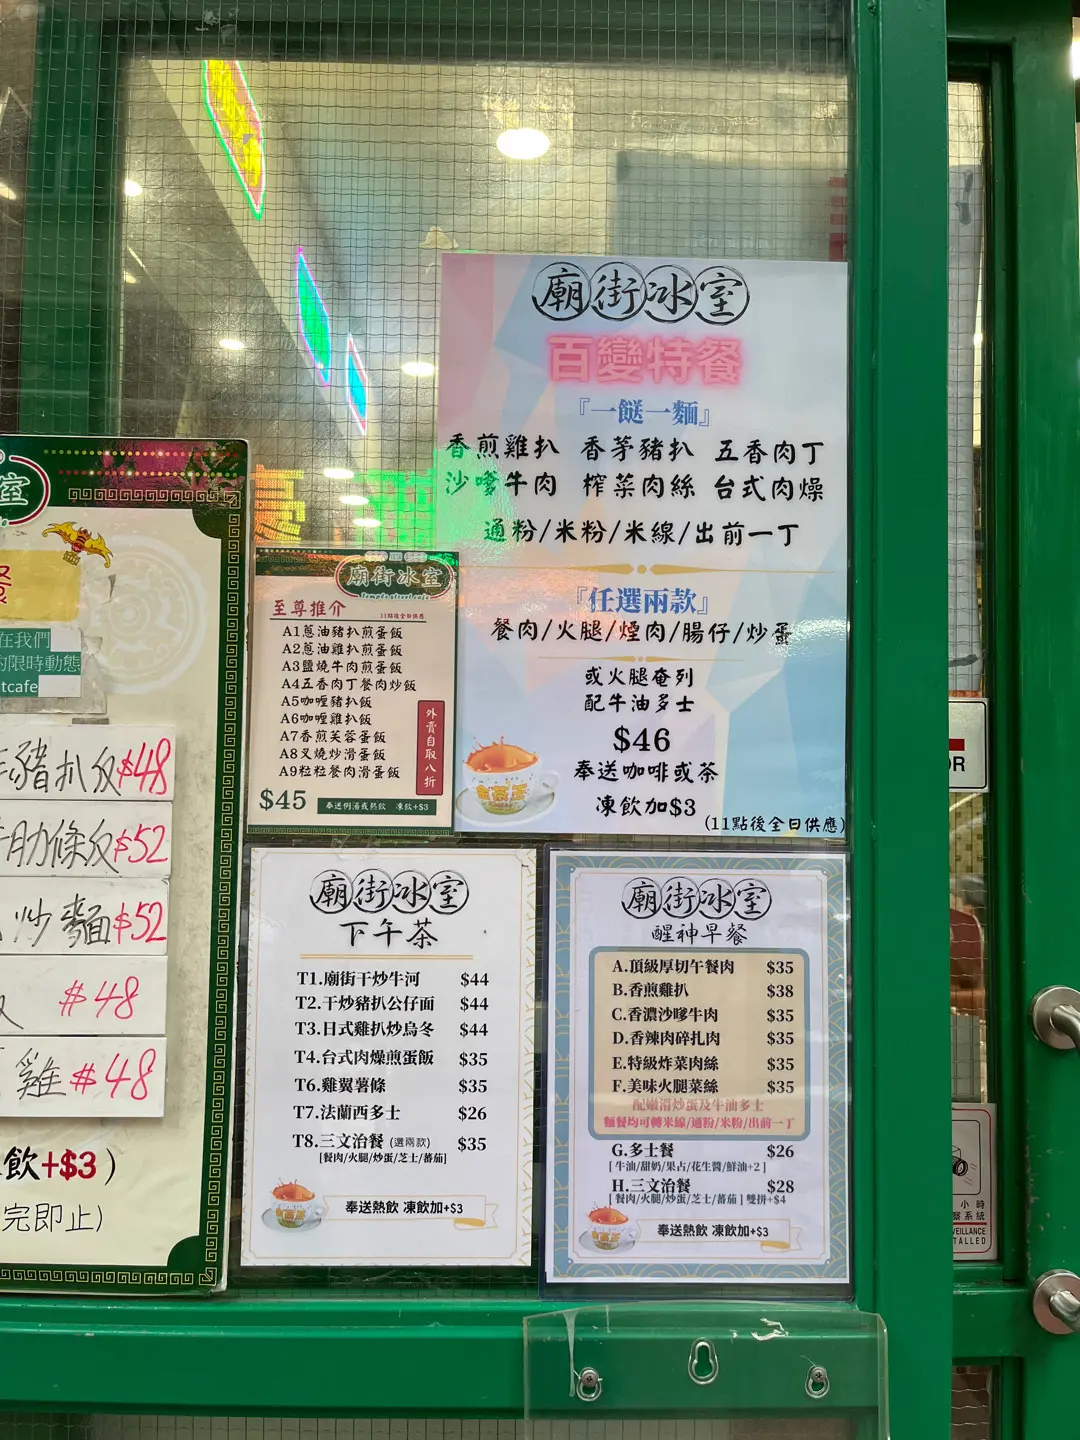 室
在我們
的限時動態
tcafe
豬扒飯$48
肋條飯$52
炒麵$52
$48
雞$48
飲+$3)
完即止)
廟街冰室
百變特餐
『一餸一麵』
香煎雞扒 香茅豬扒 五香肉丁
沙嗲牛肉 榨菜肉絲 台式肉燥
通粉/米粉/米線/出前一丁
『任選兩款』
餐肉/火腿/煙肉/腸仔/炒蛋
或火腿奄列
配牛油多士
$46
奉送咖啡或茶
凍飲加$3
(11點後全日供應)
廟街冰室
至尊推介
11點後全日供應
A1蔥油豬扒煎蛋飯
A2蔥油雞扒煎蛋飯
A3鹽燒牛肉煎蛋飯
A4五香肉丁餐肉炒飯
A5咖喱豬扒飯
A6咖喱雞扒飯
A7香煎芙蓉蛋飯
A8叉燒炒滑蛋飯
A9粒粒餐肉滑蛋飯
外賣自取八折
$45 奉送例湯或熱飲 凍飲+$3
廟街冰室
下午茶
T1.廟街干炒牛河 $44
T2.干炒豬扒公仔面 $44
T3.日式雞扒炒烏冬 $44
T4.台式肉燥煎蛋飯 $35
T6.雞翼薯條 $35
T7.法蘭西多士 $26
T8.三文治餐 (選兩款) $35
[餐肉/火腿/炒蛋/芝士/蕃茄]
奉送熱飲 凍飲加+$3
廟街冰室
醒神早餐
A.頂級厚切午餐肉 $35
B.香煎雞扒 $38
C.香濃沙嗲牛肉 $35
D.香辣肉碎扎肉 $35
E.特級炸菜肉絲 $35
F.美味火腿菜絲 $35
配嫩滑炒蛋及牛油多士
麵餐均可轉米線/通粉/米粉/出前一丁
G.多士餐 $26
[牛油/甜奶/果占/花生醬/鮮油+2]
H.三文治餐 $28
[餐肉/火腿/炒蛋/芝士/蕃茄]雙拼+$4
奉送熱飲 凍飲加+$3
OR
小時
察系統
VEILLANCE
TALLED